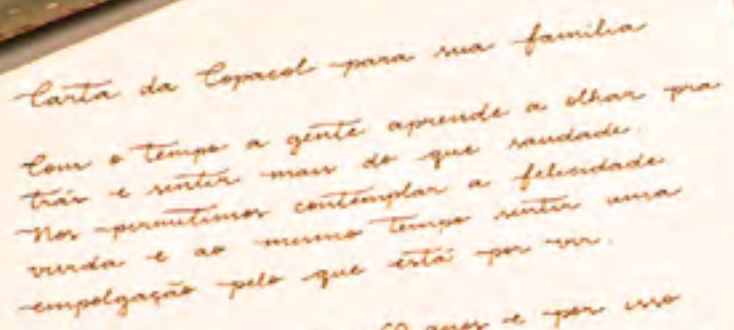 Carta da Copacol para sua família
Com o tempo a gente aprende a olhar pra
trás e sentir mais do que saudade.
Nos permitimos contemplar a felicidade
vivida e ao mesmo tempo sentir uma
empolgação pelo que está por vir.
60 anos e por isso